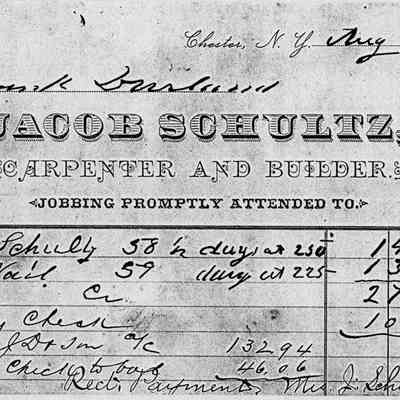 Chester, N. Y. Aug
Durland
JACOB SCHULTZ,
CARPENTER AND BUILDER.
JOBBING PROMPTLY ATTENDED TO.
Schultz 58 ½ days at 250 14
59 days at 225 13
Cr 27
Check 10
J. D & Son a/c 132.94
Check to 46.06
Rect Payment Mrs. J. Sch